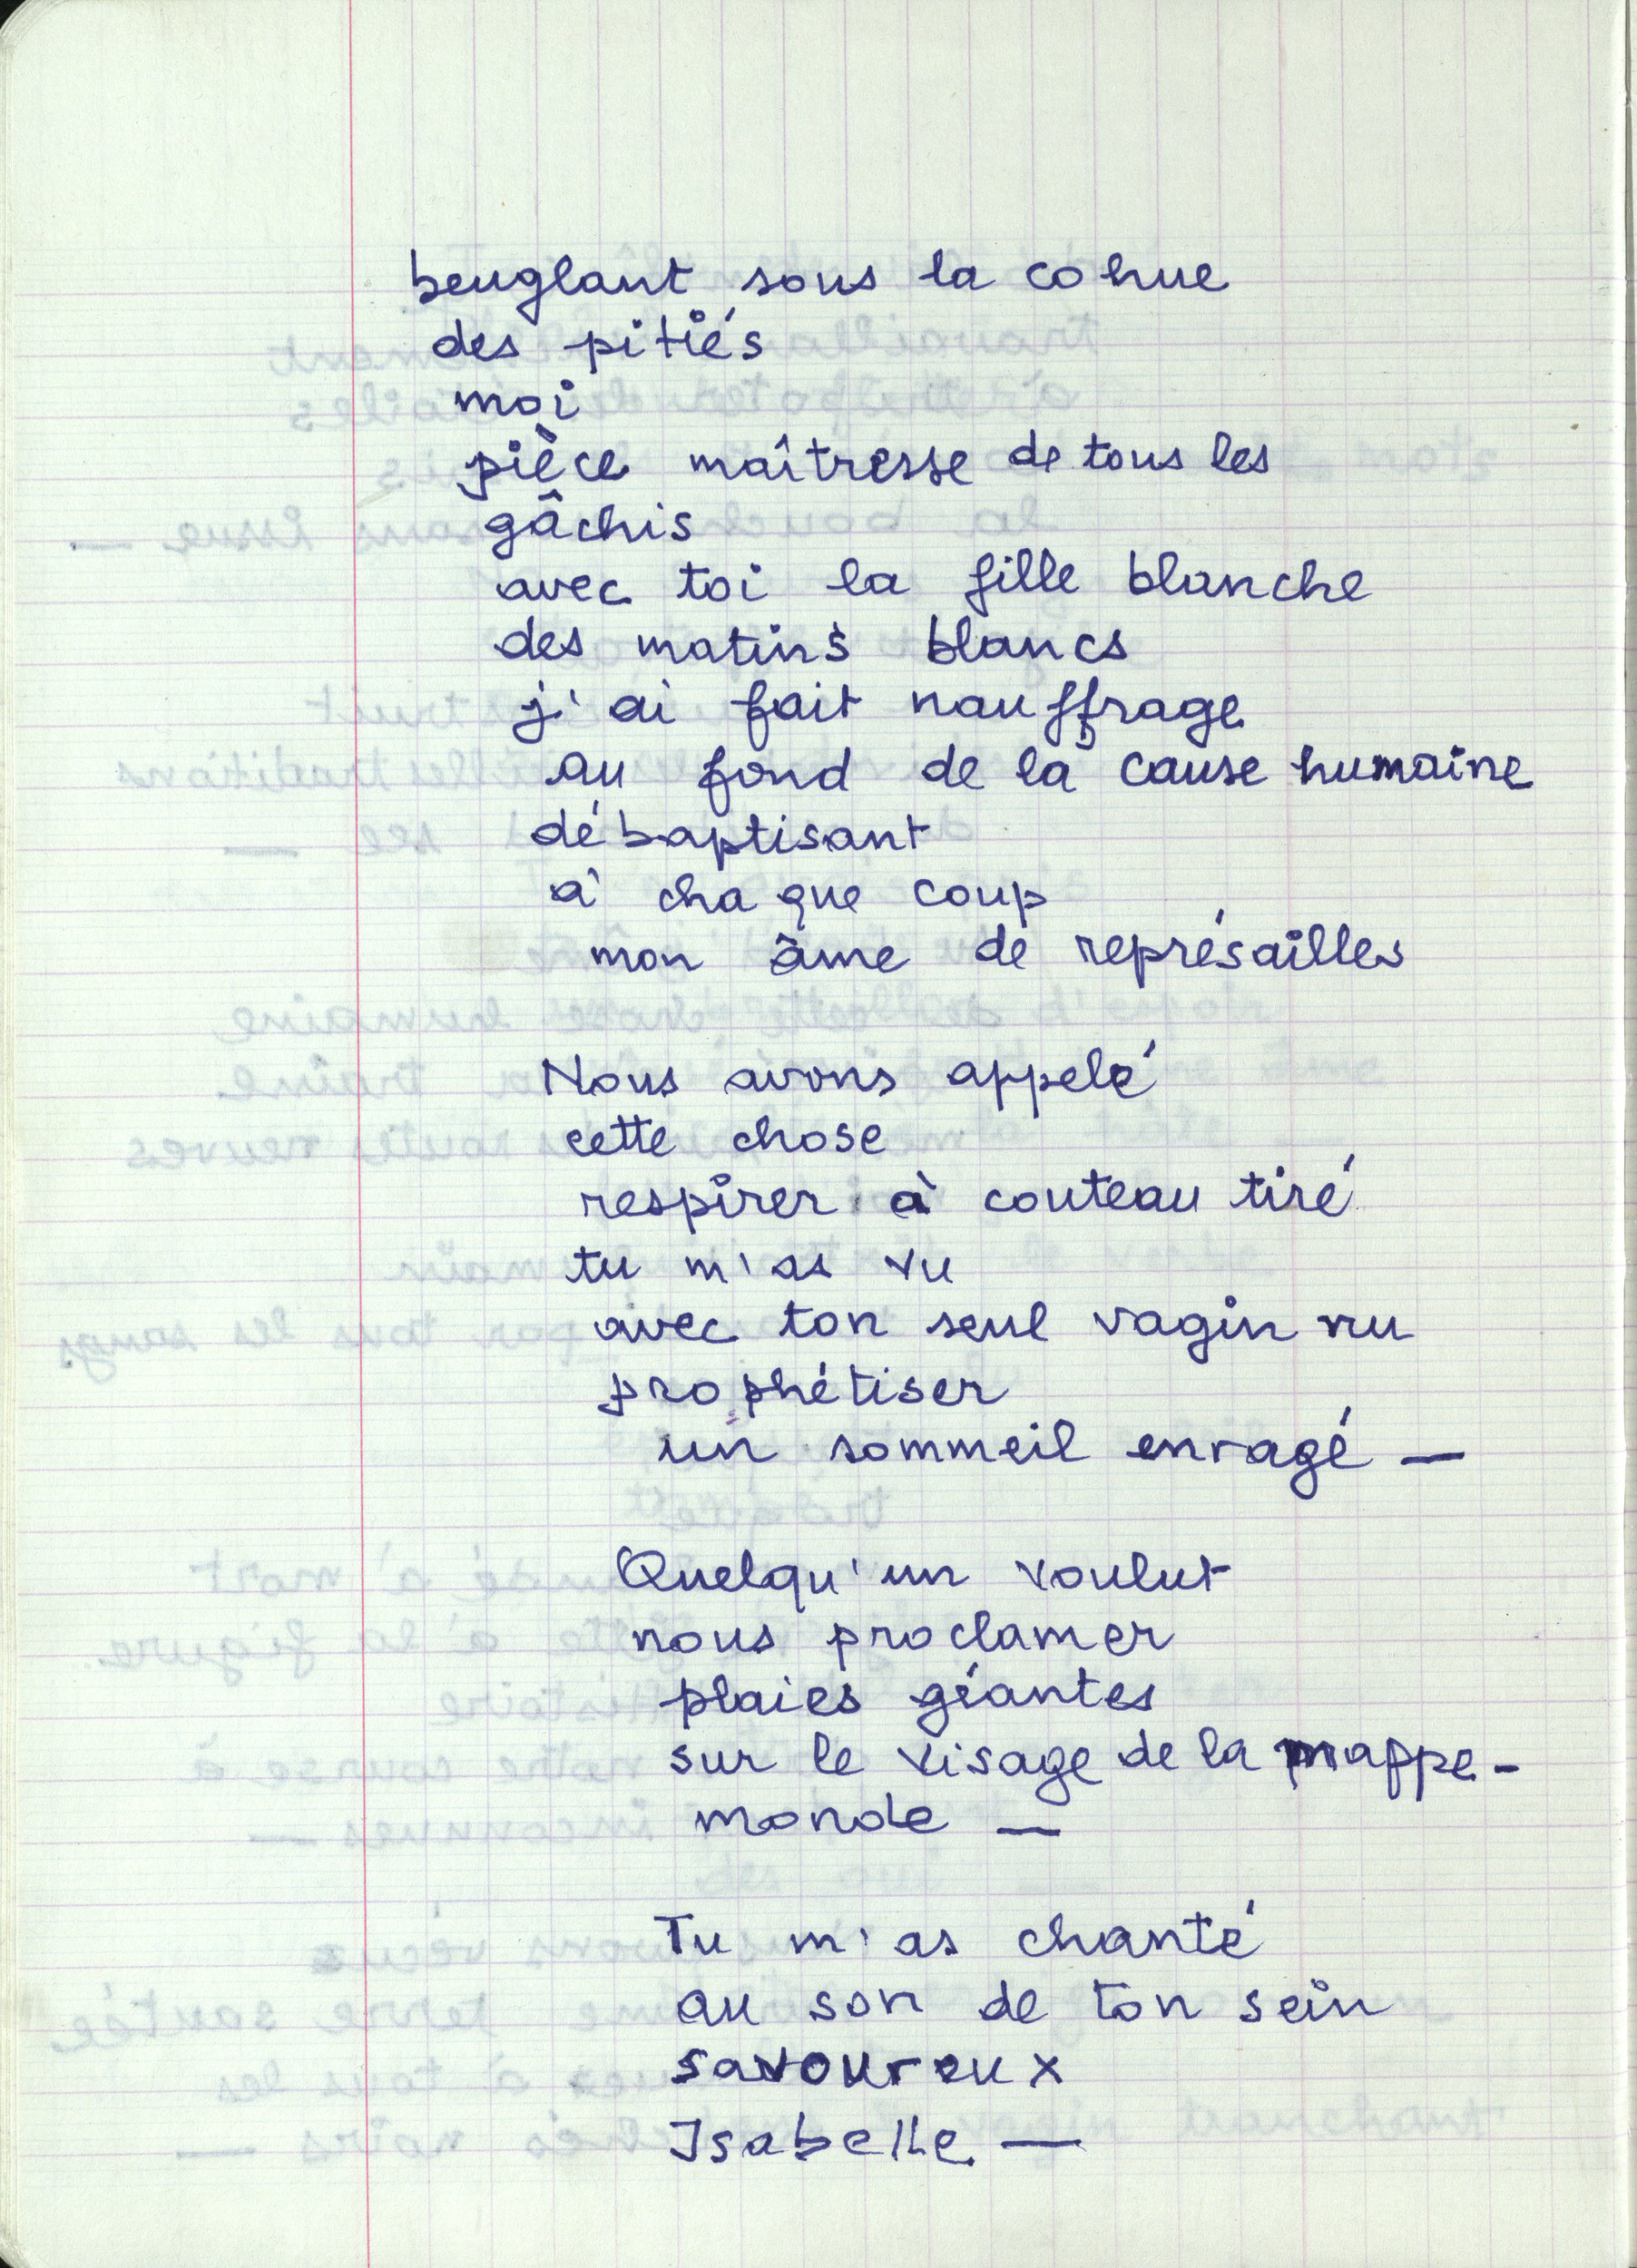 beuglant sous la cohue
des pitiés
moi
pièce maîtresse de tous les
gâchis
avec toi la fille blanche
des matins blancs
j'ai fait nauffrage
au fond de la cause humaine
débaptisant
à chaque coup
mon âme de représailles
Nous avons appelé
cette chose
respirer à couteau tiré
tu m'as vu
avec ton seul vagin nu
prophétiser
un sommeil enragé —
Quelqu'un voulut
nous proclamer
plaies géantes
sur le visage de la mappe-
monde —
Tu m'as chanté
au son de ton sein
savoureux
Isabelle —